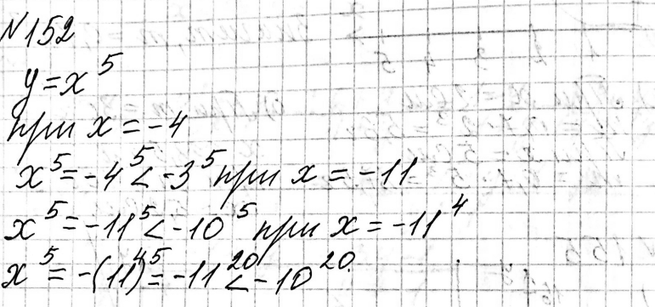 №152
y=x⁵
при x = -4
x⁵ = -4⁵ < -3⁵ при x = -11
x⁵ = -11⁵ < -10⁵ при x = -11⁴
x⁵ = -(11⁴)⁵ = -11²⁰ < -10²⁰